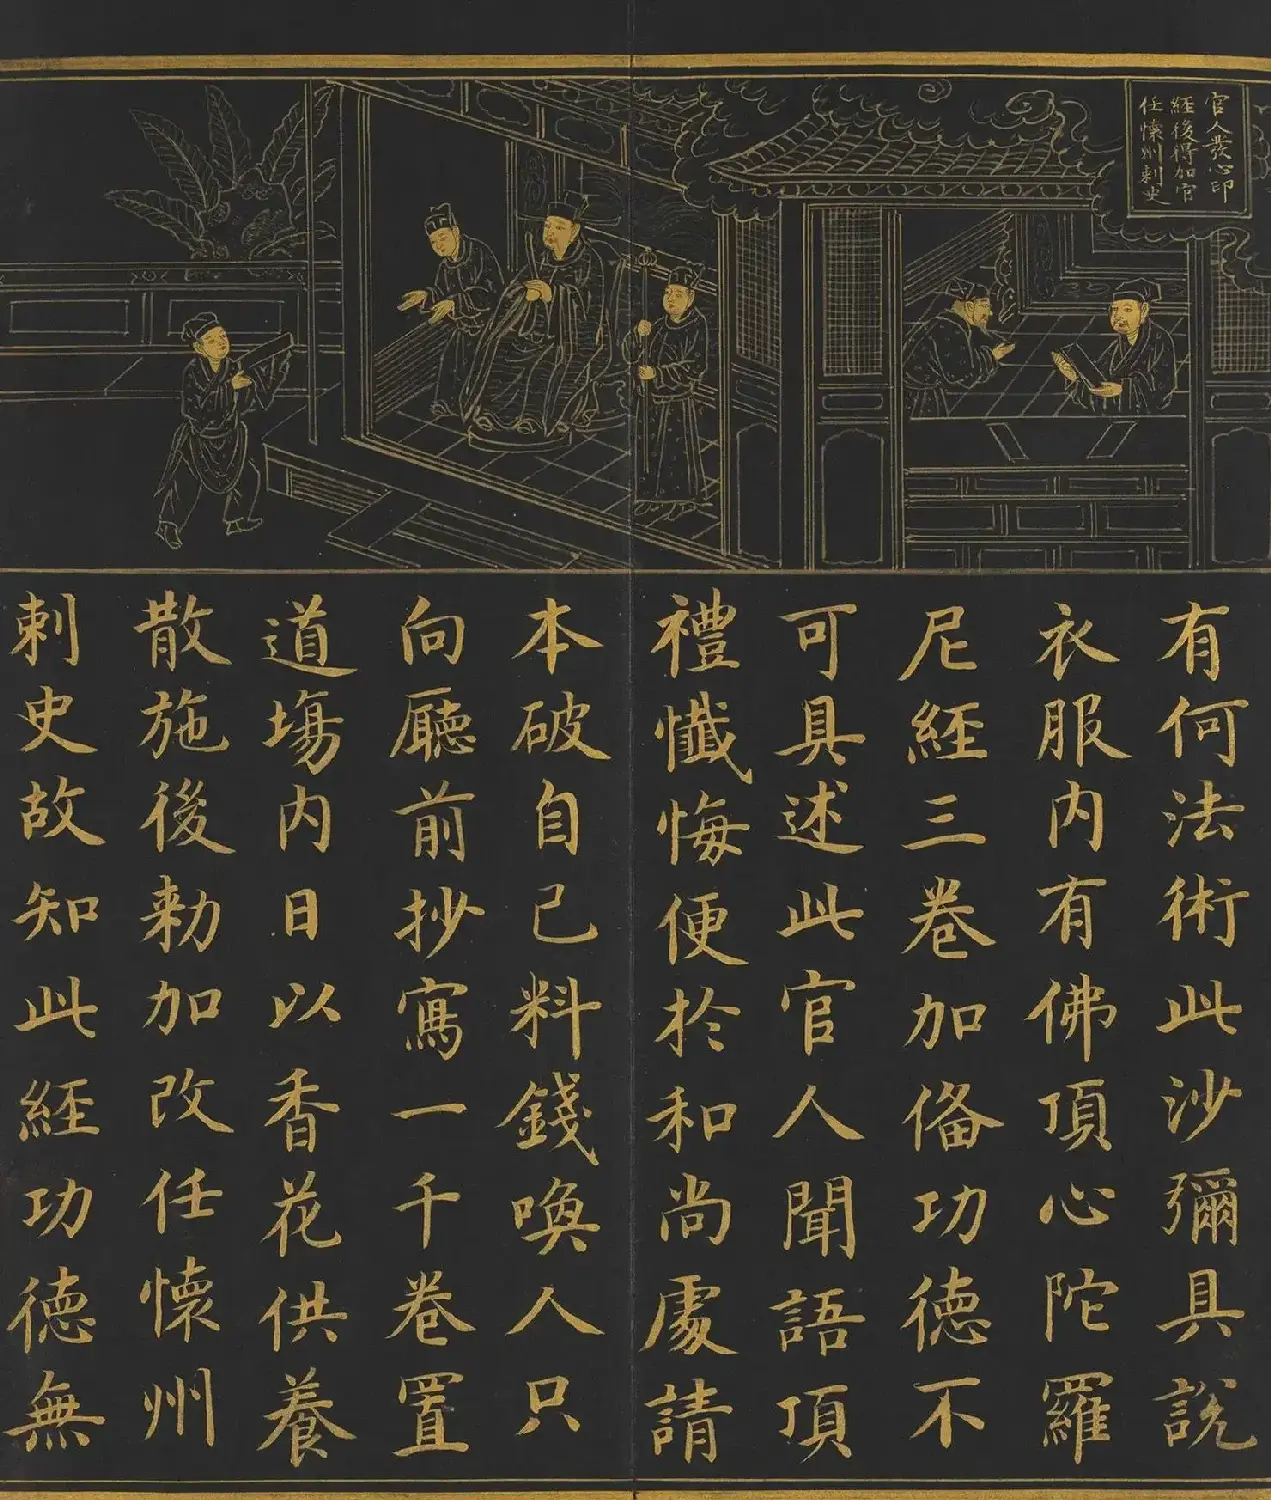 官人發心印
經後得加官
任懷州刺史
有何法術此沙彌具說
衣服内有佛頂心陀羅
尼經三卷加俻功德不
可具述此官人聞語頂
禮懺悔便於和尚處請
本破自己料錢喚人只
向廳前抄寫一千卷置
道場内日以香花供養
散施後勑加改任懷州
刺史故知此經功德無